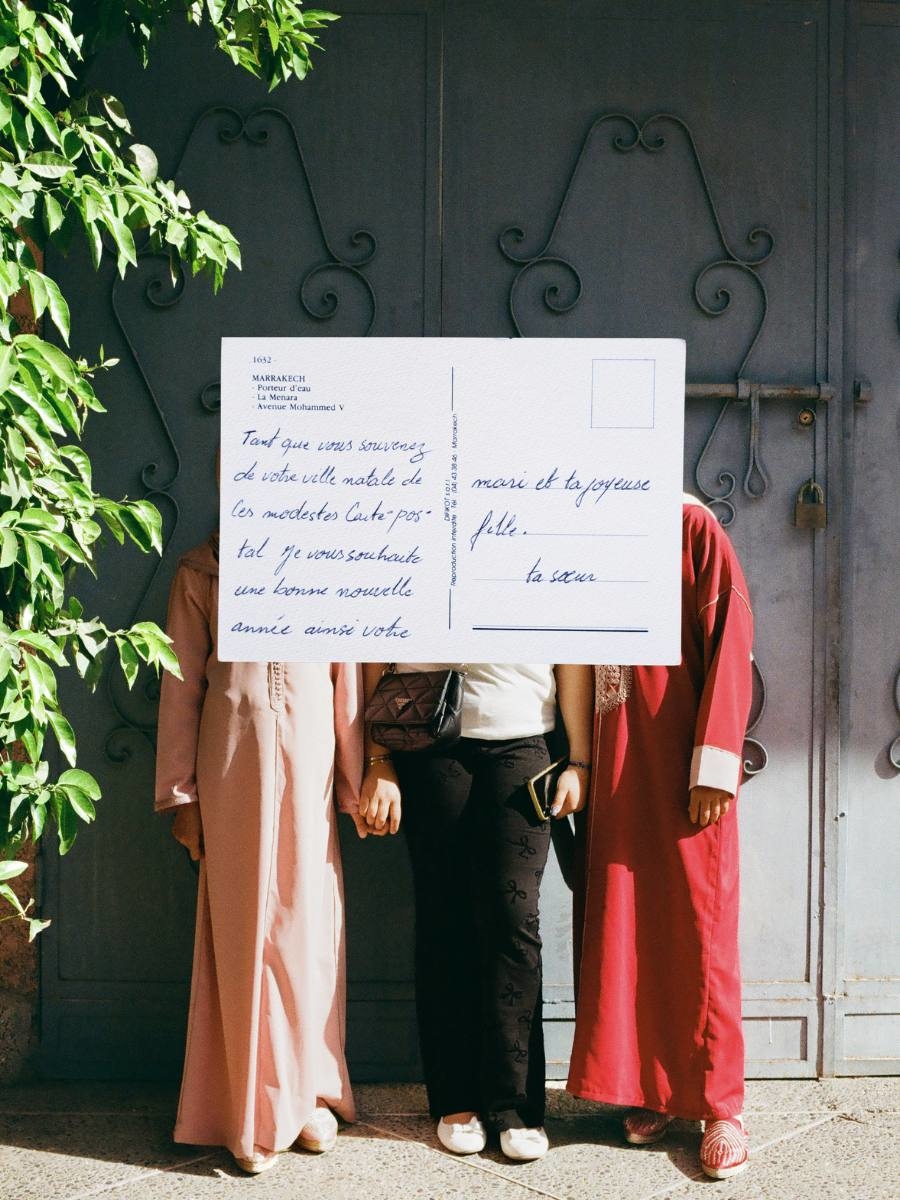 1632 -
MARRAKECH
- Porteur d'eau
- La Menara
- Avenue Mohammed V
Tant que vous souvenez
de votre ville natale de
les modestes Carte-pos-
tal Je vous souhaite
une bonne nouvelle
année ainsi votre
Reproduction interdite Tél : (04) 43.38.46 Marrakech
mari et ta joyeuse
fille.
ta sœur